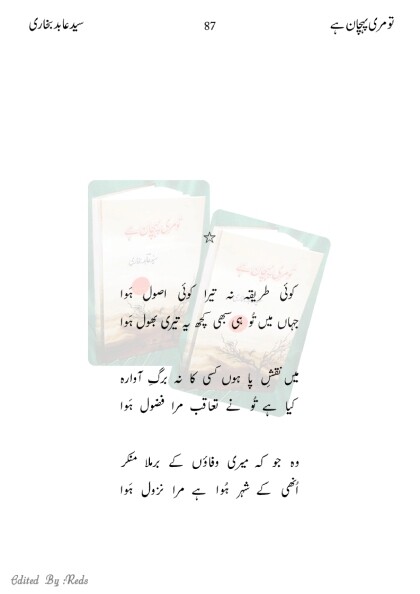 تو مری پہچان ہے
87
سید عابد بخاری
کوئی طریقہ نہ تیرا کوئی اصول ہَوا
جہاں میں تُو ہی سبھی کچھ یہ تیری بھول ہَوا
میں نقشِ پا ہوں کسی کا نہ برگِ آوارہ
کیا ہے تُو نے تعاقب مرا فضول ہَوا
وہ جو کہ میری وفاؤں کے برملا منکر
اُنھی کے شہر ہُوا ہے مرا نزول ہَوا
تو مری پہچان ہے
تو مری پہچان ہے
Edited By :Reds